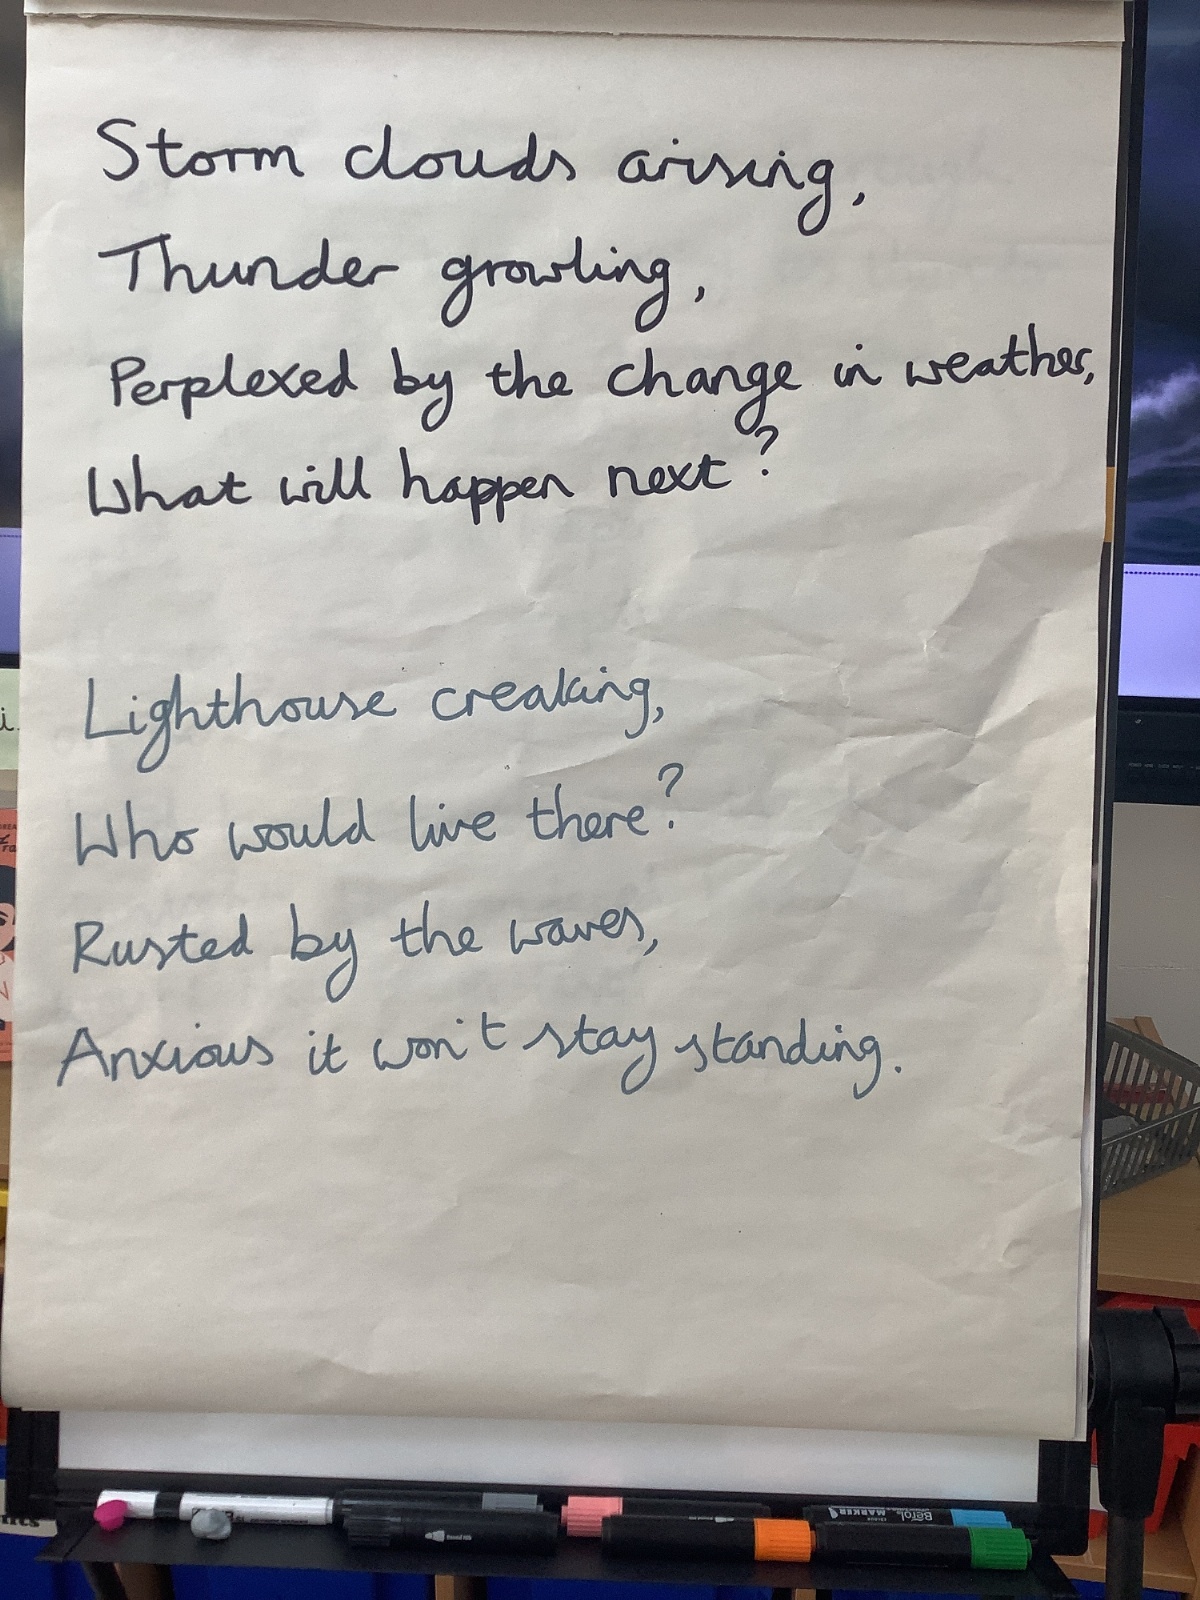 Storm clouds arising,
Thunder growling,
Perplexed by the change in weather,
What will happen next?
Lighthouse creaking,
Who would live there?
Rusted by the waves,
Anxious it won't stay standing.
Berol
MARKER